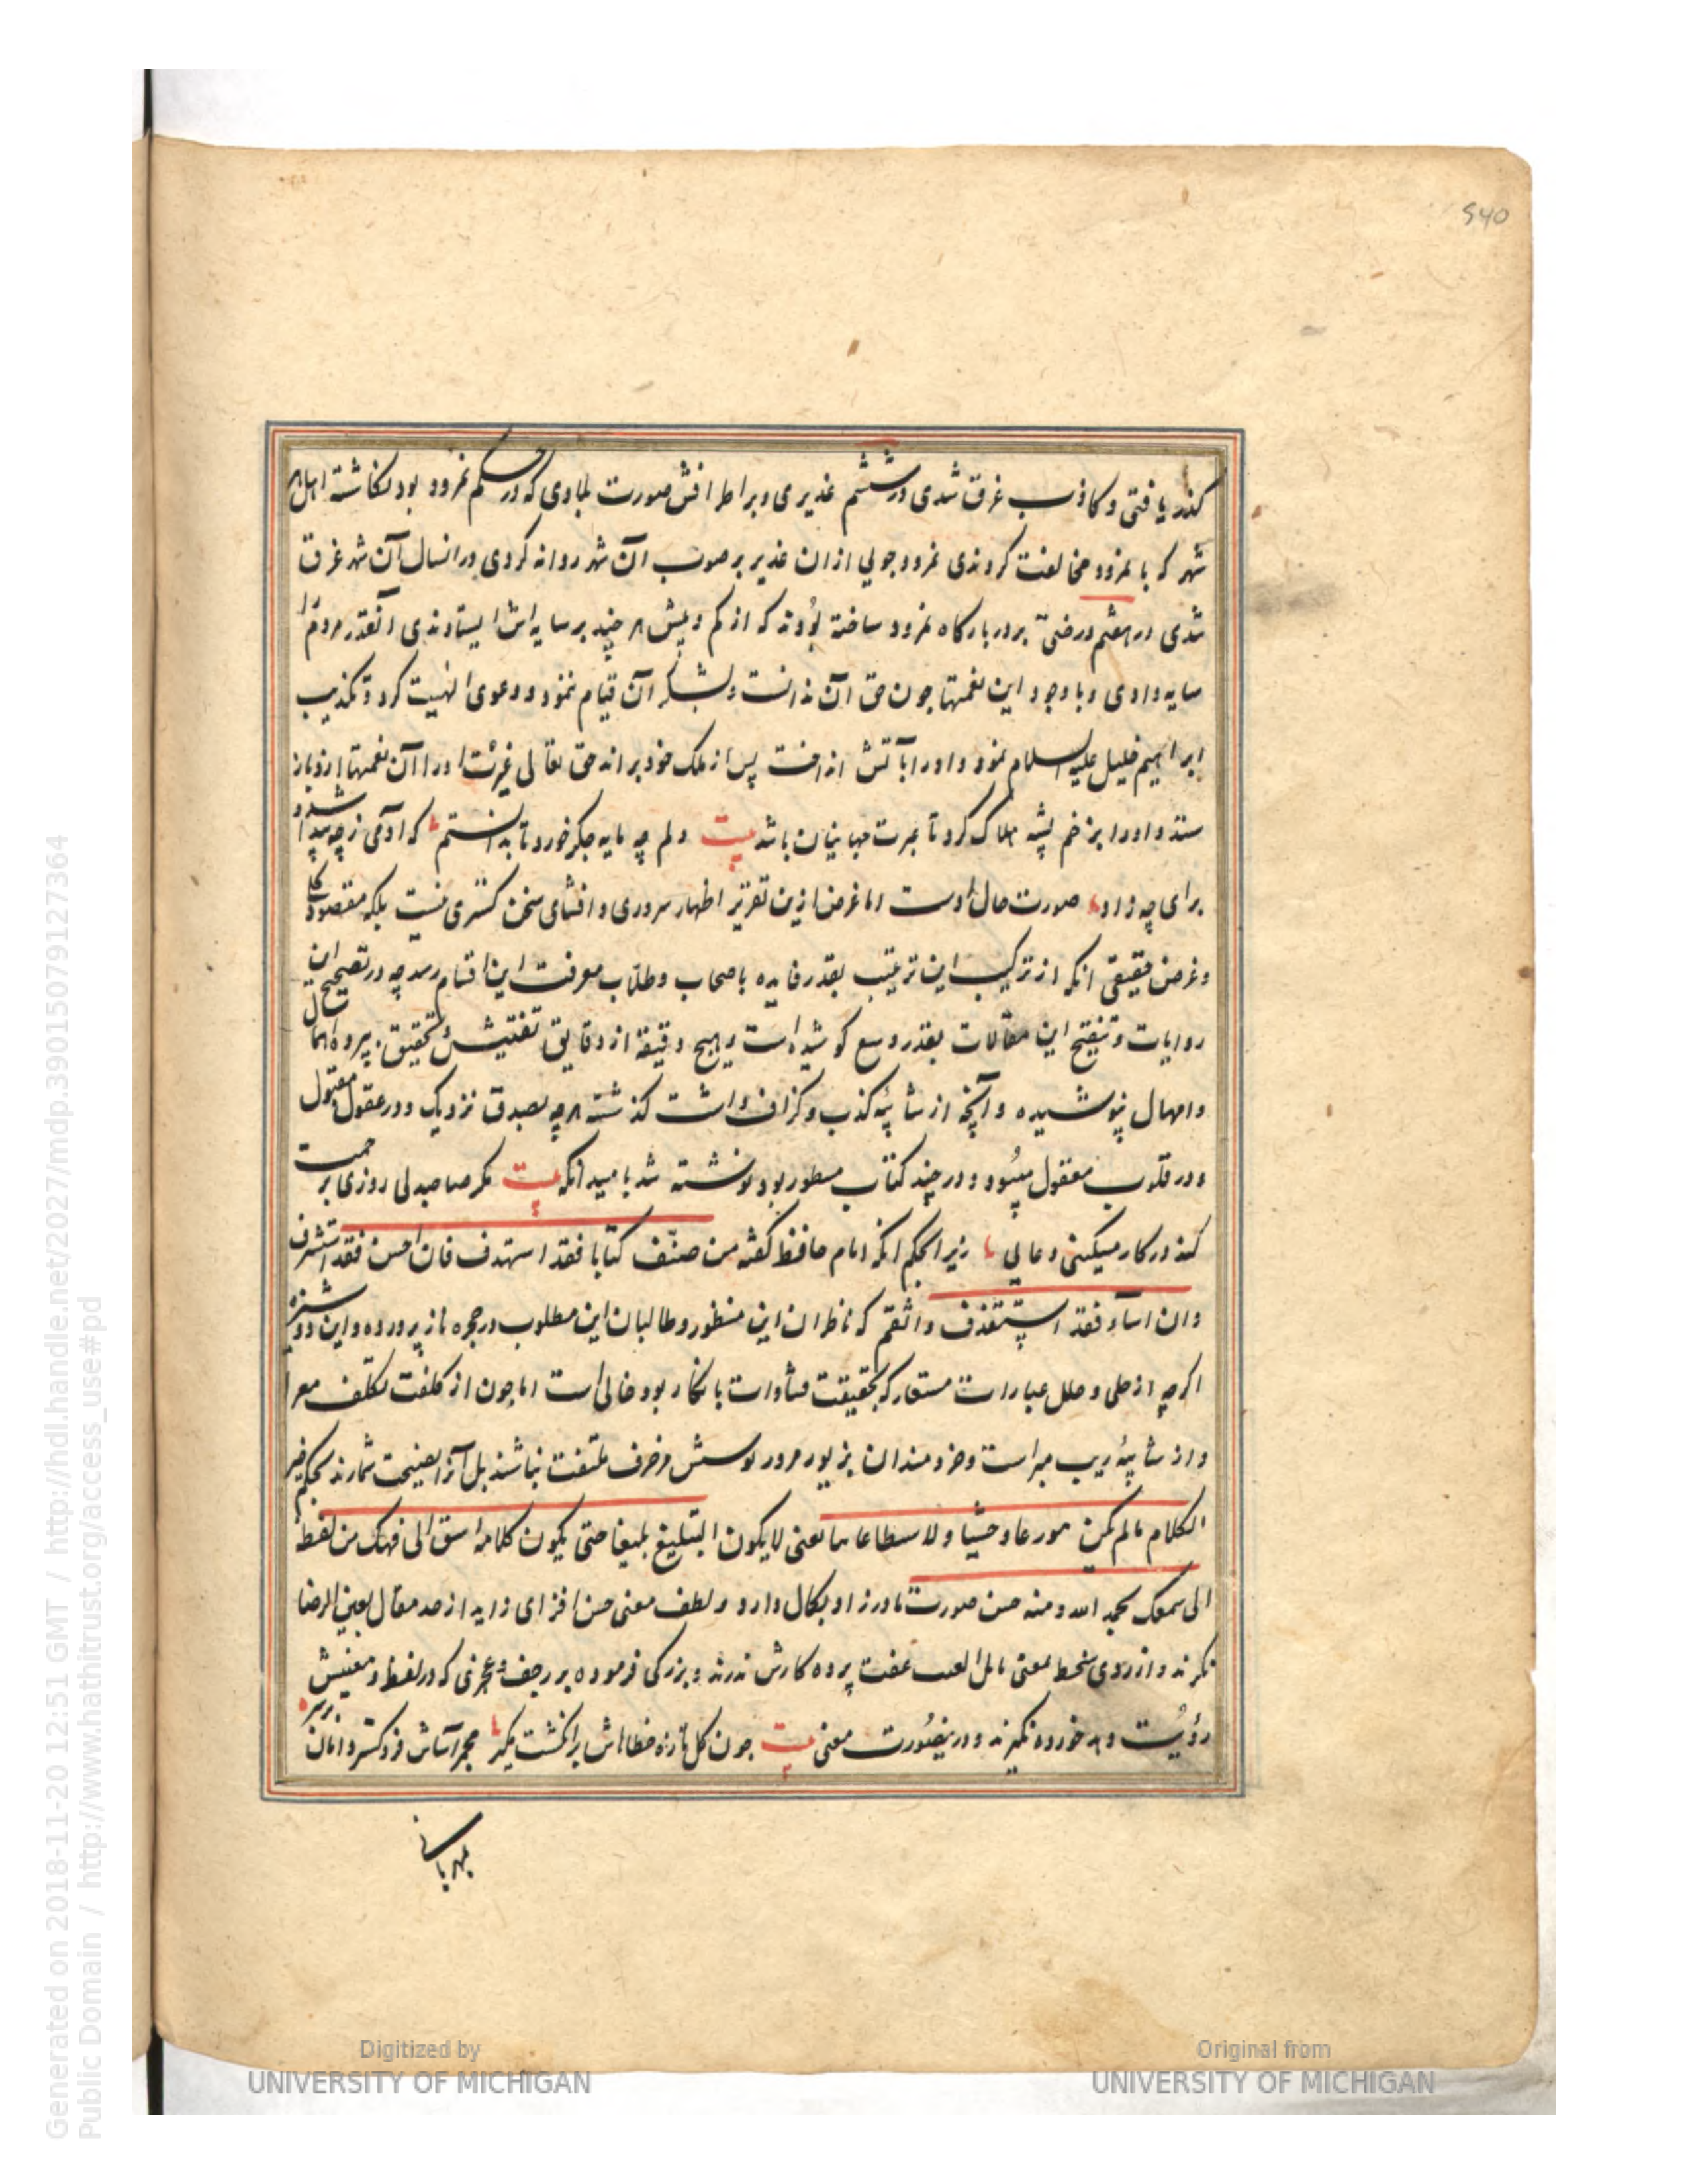 540
کذر یافتی و کاذب غرق شدی در ششم غدیری و بر اطرافش صورت بلادی که در حکم نمرود بود نکاشته اهل هر
شهر که با نمرود مخالفت کردندی نمرود جویی ازان غدیر بر صوب آن شهر روانه کردی در انسال آن شهر غرق
شدی در هفتم درختی بر در بارکاه نمرود ساخته بودند که از کم و بیش هر چند بر سایه اش ایستادندی آنقدر مردم را
سایه دادی و با وجود این نعمتها چون حق آن ندانست و بشکر آن قیام ننمود و دعوی الهیت کرد و تکذیب
ابراهیم خلیل علیه السلام نمود و اورا بآتش انداخت پس از ملک خود براند حق تعالی اورا آن نعمتها ازو باز
ستد و اورا بزخم پشه هلاک کرد تا عبرت جهانیان باشد بیت دلم چه مایه جکر خورد تا بدانستم که آدمی ز چه پیدا شد و
برای چه زاد صورت حال اوست اما غرض ازین تقریر اظهار سروری و افشای سخن کستری نیست بلکه مقصود کلی
و غرض حقیقی انکه از ترکیب این ترتیب بقدر فایده باصحاب و طلاب معرفت این اقسام رسد چه در تصحیح این
روایات و تنقیح این مقالات بقدر وسع کوشیده است و هیچ دقیقه از دقایق تفتیش و تحقیق بپرده اهمال
و امهال نپوشیده و آنچه از شائبه کذب و کزاف داشت کذشته هرچه بصدق نزدیک و در عقول مقبول
و در قلوب معقول میبود و در چند کتاب مسطور بود نوشته شد بامید انکه بیت مکر صاحبدلی روزی برحمت
کند در کار مسکینی دعایی زیرا بحکم انکه امام حافظ کفته من صنّف کتابا فقد استهدف فان احسن فقد استشرف
وان اساء فقد استقذف واثقم که ناظران این منظور و طالبان این مطلوب در حجره ناز پرورده و این دوشیزه
اکرچه از حلی و حلل عبارات مستعار که بحقیقت بانکار بود خالی است اما چون از کلفت تکلف معرا
و از شائبه ریب مبراست و خردمندان بزیور مزور و پوشش مزخرف ملتفت نباشند بل آنرا بحکم خیر
الکلام مالم یکن وحشیا ولا یعنی لا یکون البلیغ بلیغا حتی یکون کلامه اسبق الی فهمک من لفظه
الی سمعک بحمد الله و منه حسن صورت مادرزاد بکمال دارد و لطف معنی حسن افزای زاید از حد مقال بعین الرضا
نکرند و از روی سخط بمعنی عفت پرده کارش ندرند و بزرکی فرموده بر هر حرفی که در لفظ و معنیش
رؤیت دهد خورده نکیرند و درینصورت معنی بیت چون کل تازه خطاهاش بر انکشت مکیر مجمر آساش فرو کستر دامان بر سر
مهربانی
Generated on 2018-11-20 12:51 GMT / http://hdl.handle.net/2027/mdp.39015079127364
Public Domain / http://www.hathitrust.org/access_use#pd
Digitized by
UNIVERSITY OF MICHIGAN
Original from
UNIVERSITY OF MICHIGAN